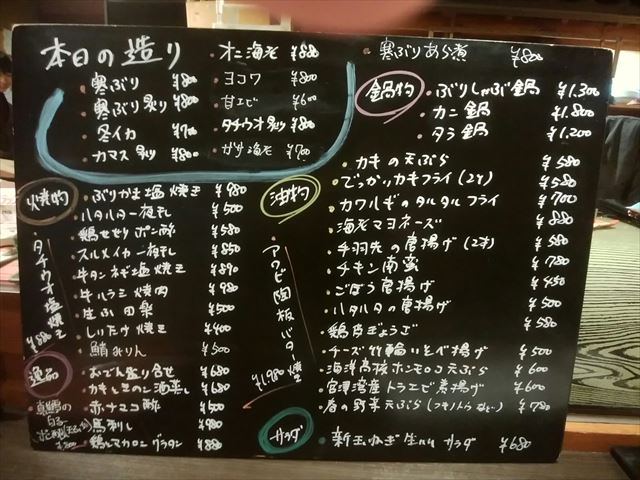 本日の造り
寒ぶり ¥800
寒ぶり炙り ¥800
冬イカ ¥700
カマス炙り ¥800
オニ海老 ¥880
ヨコワ ¥800
甘エビ ¥600
タチウオ炙り ¥800
ガサ海老 ¥700
寒ぶりあら煮 ¥800
鍋物
ぶりしゃぶ鍋 ¥1.300
カニ鍋 ¥1.800
タラ鍋 ¥1.200
焼物
ぶりかま塩焼き ¥980
ハタハタ一夜干し ¥500
鶏せせりポン酢 ¥580
スルメイカ一夜干し ¥850
牛タンネギ塩焼き ¥890
牛ハラミ焼肉 ¥980
生ふ田楽 ¥500
しいたけ焼き ¥400
鯖みりん ¥500
タチウオ塩焼き ¥880
逸品
おでん盛り合せ ¥680
カキとミカン油蒸し ¥680
赤ナマコ酢 ¥500
馬刺し ¥980
鶏とマカロニグラタン ¥880
真鱈の白子
油物
カキの天ぷら ¥580
でっかいカキフライ(2ケ) ¥580
カワハギのタルタルフライ ¥700
海老マヨネーズ ¥880
手羽先の唐揚げ(2本) ¥580
チキン南蛮 ¥780
ごぼう唐揚げ ¥450
ハタハタの唐揚げ ¥500
鶏皮ぎょうざ ¥580
チーズ竹輪いそべ揚げ ¥500
海洋高校ホンモロコ天ぷら ¥600
宮津湾産トラエビ唐揚げ ¥600
春の野菜天ぷら(フキノトウなど) ¥780
アワビ陶板バター焼き ¥1.980
サラダ
新玉ねぎ生ハムサラダ ¥680